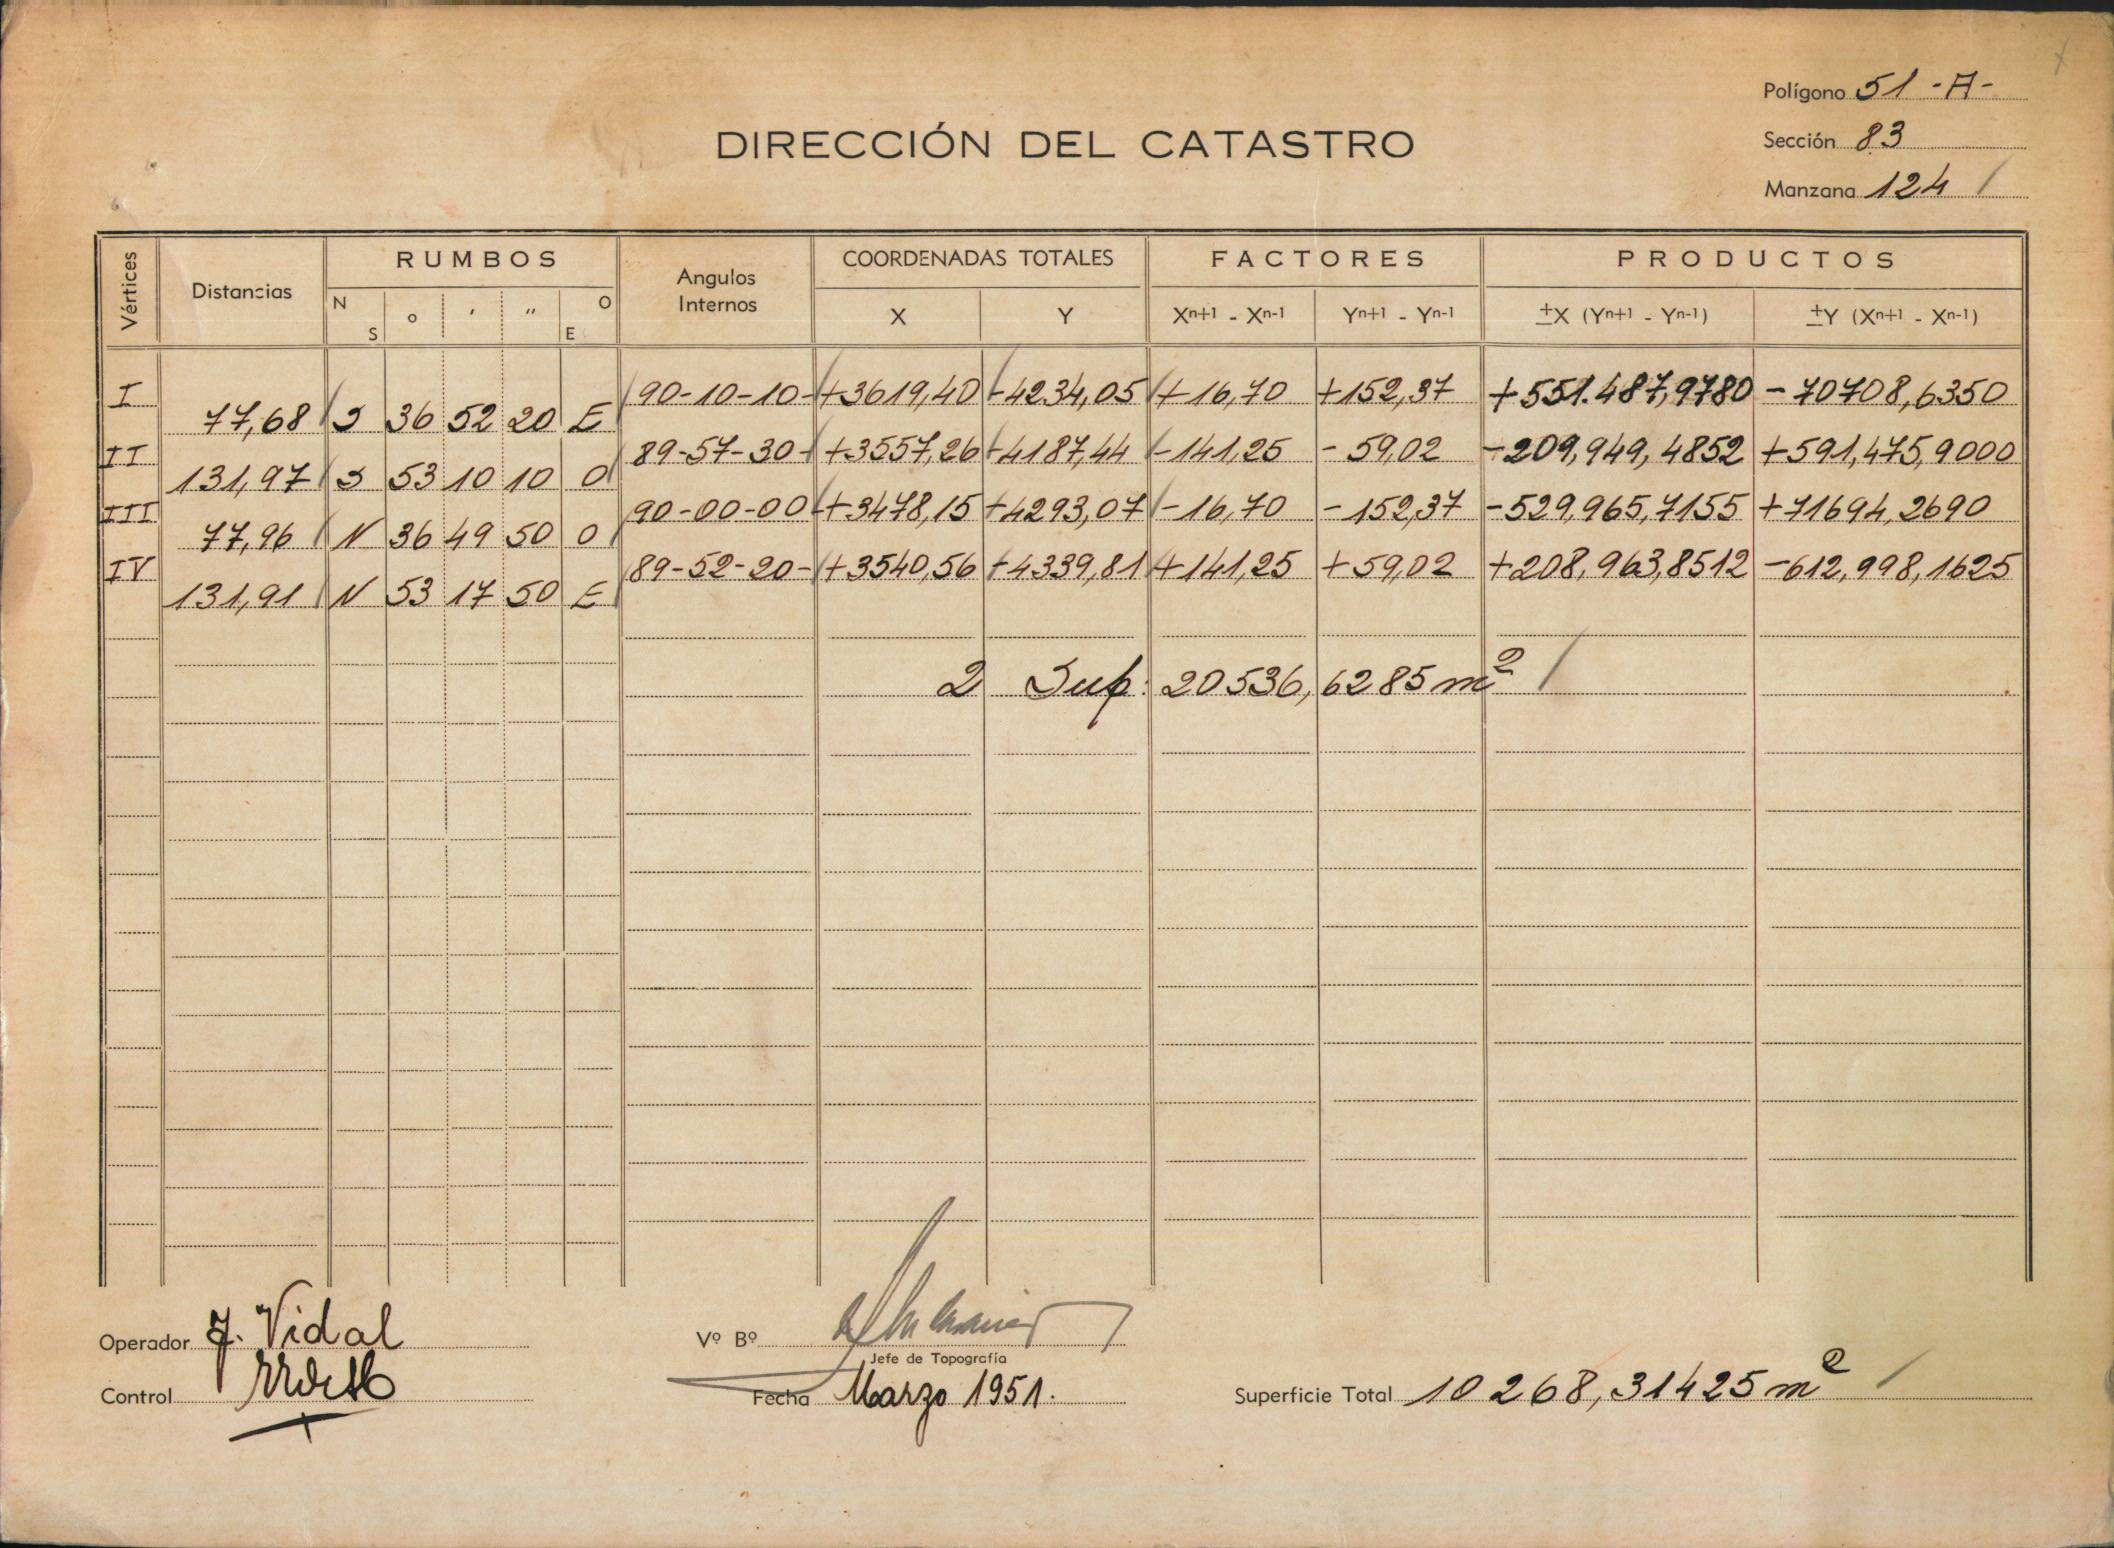 Polígono 51 -A-
DIRECCIÓN DEL CATASTRO
Sección 83
Manzana 124
Vértices Distancias RUMBOS Angulos Internos COORDENADAS TOTALES FACTORES PRODUCTOS
N S o ' " O E X Y Xn+1 - Xn-1 Yn+1 - Yn-1 ±X (Yn+1 - Yn-1) ±Y (Xn+1 - Xn-1)
I 90-10-10- +3619,40 +4234,05 +16,70 +152,37 +551.487,9780 -70708,6350
77,68 S 36 52 20 E
II 89-57-30- +3557,26 +4187,44 -141,25 -59,02 -209,949,4852 +591,475,9000
131,97 S 53 10 10 O
III 90-00-00- +3478,15 +4293,07 -16,70 -152,37 -529,965,7155 +71694,2690
77,96 N 36 49 50 O
IV 89-52-20- +3540,56 +4339,81 +141,25 +59,02 +208,963,8512 -612,998,1625
131,91 N 53 17 50 E
2 Sup: 20536,6285 m²
Operador J. Vidal Vº Bº
Jefe de Topografía
Control Fecha Marzo 1951. Superficie Total 10268,31425 m²